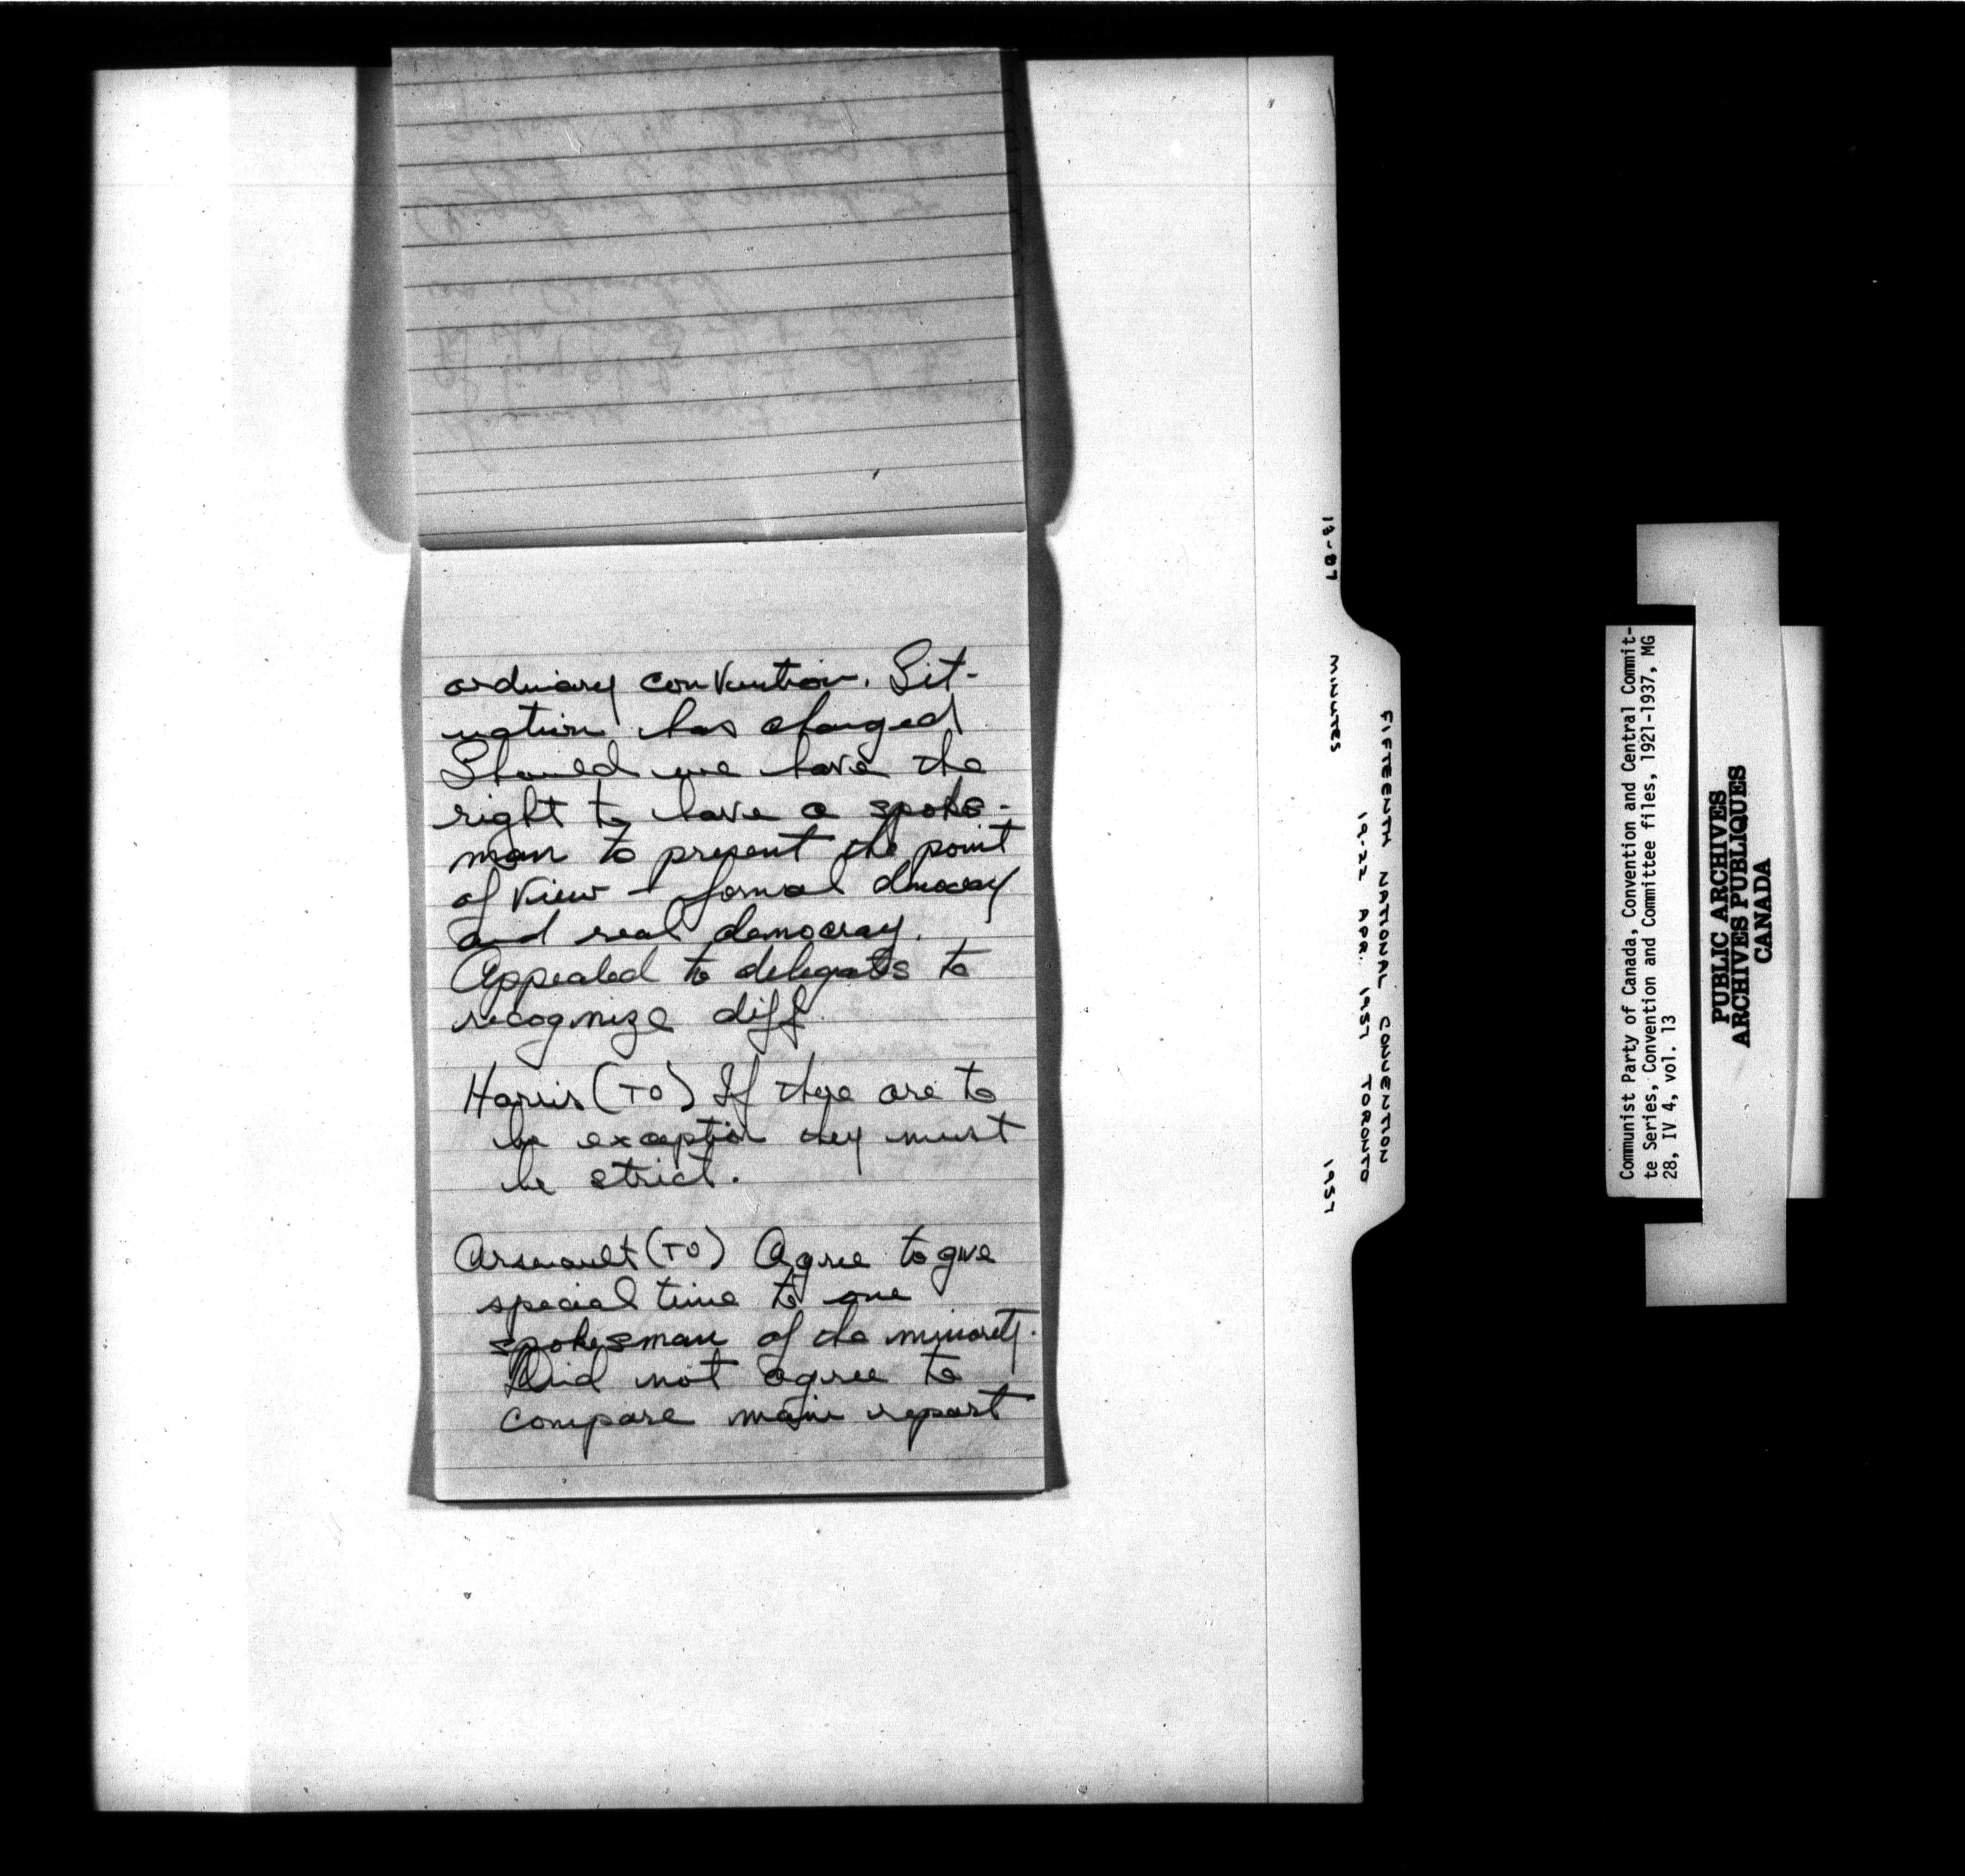 ordinary convention. Sit-
uation has changed
Should we have the
right to have a spoke-
man to present the point
of view - formal dmocracy
and real democracy.
Appealed to delegates to
recognize diff.
Harris (TO) If there are to
be exception they must
be strict.
Arsenault (TO) Agree to give
special time to one
spokesman of the minority.
Did not agree to
compare main report
13-07 MINUTES 1957
FIFTEENTH NATIONAL CONVENTION
19-22 APR. 1957 TORONTO
Communist Party of Canada, Convention and Central Commit-
te Series, Convention and Committee files, 1921-1937, MG
28, IV 4, vol. 13
PUBLIC ARCHIVES
ARCHIVES PUBLIQUES
CANADA